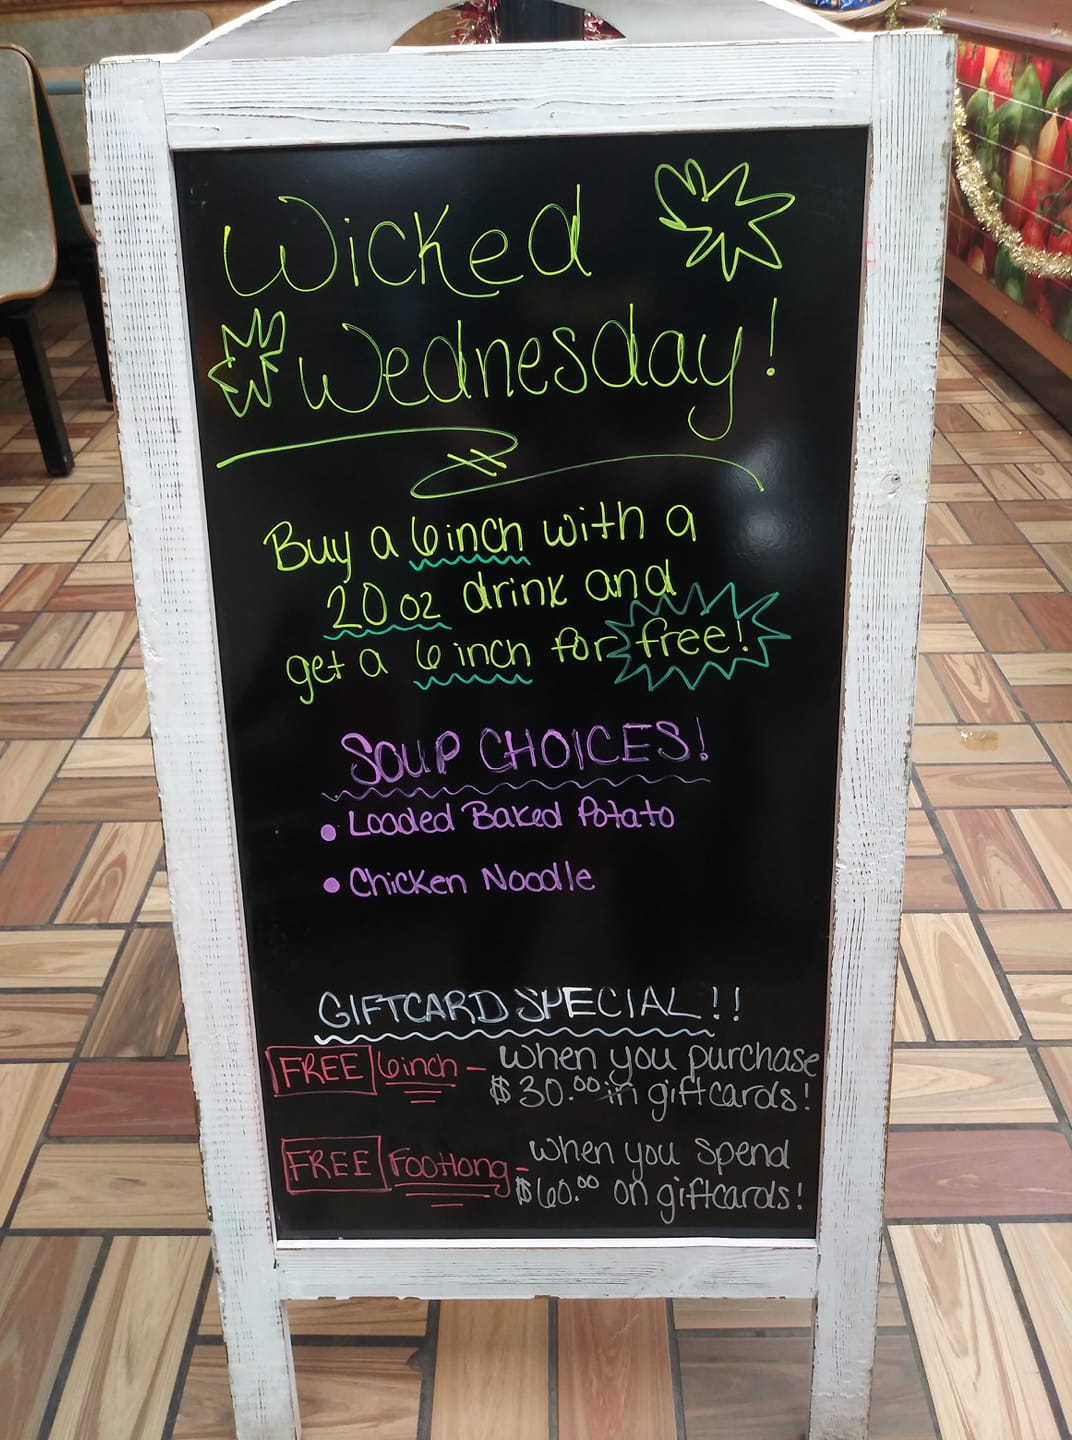 Wicked
Wednesday!
Buy a 6inch with a
20 oz drink and
get a 6 inch for free!
SOUP CHOICES!
• Loaded Baked Potato
• Chicken Noodle
GIFTCARD SPECIAL!!
FREE 6inch - when you purchase
$30.00 in giftcards!
FREE Footlong - when you spend
$60.00 on giftcards!